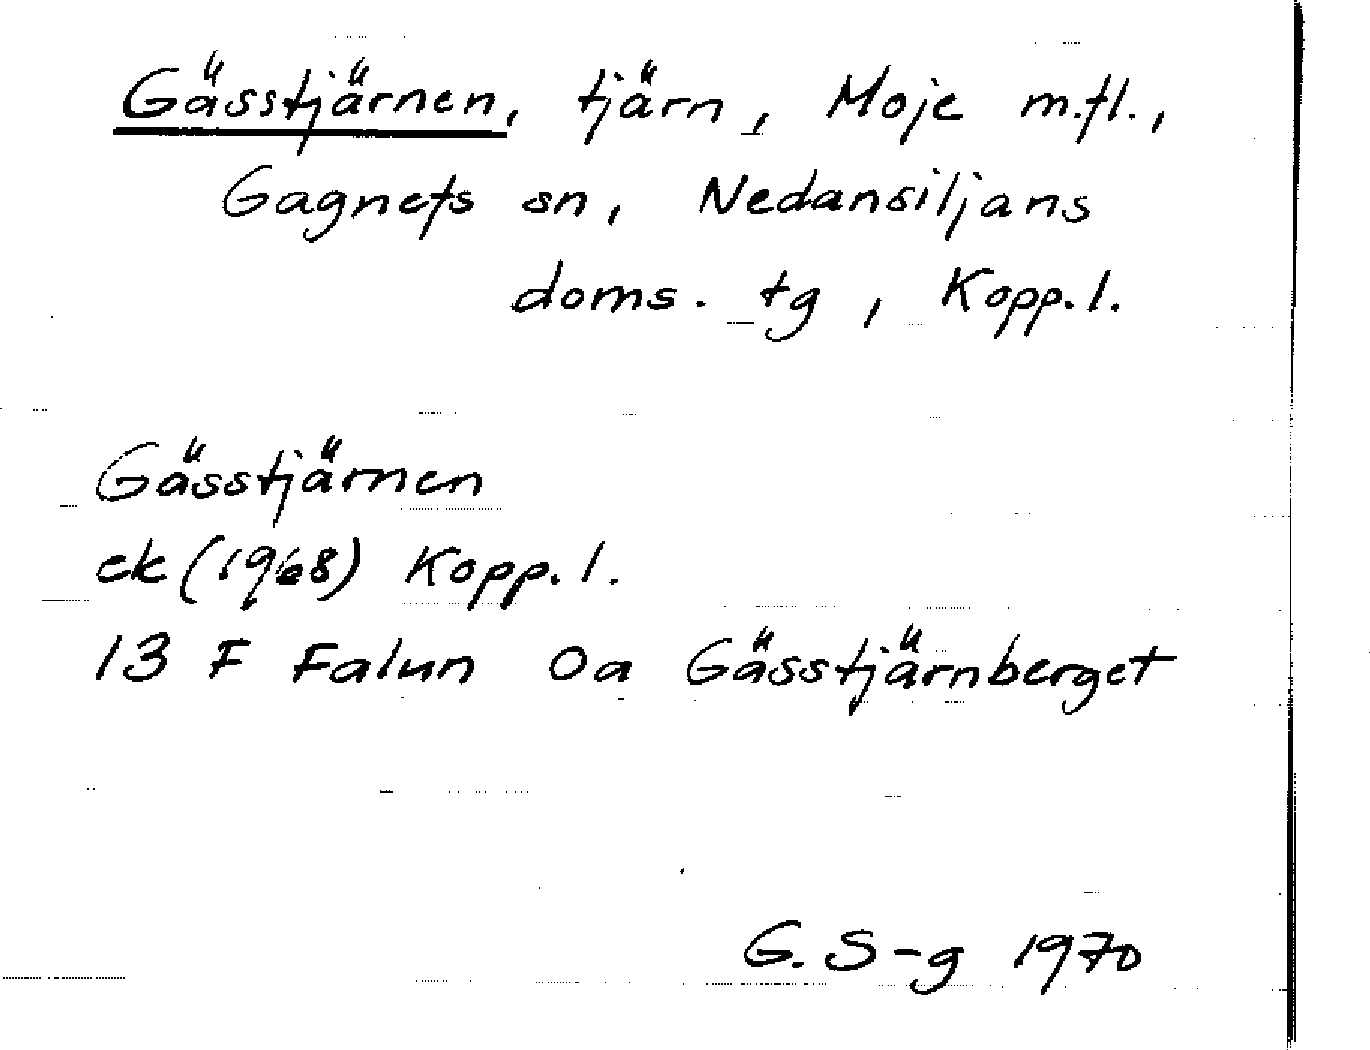 Gässtjärnen, tjärn, Moje m.fl.,
Gagnefs sn, Nedansiljans
doms. tg, Kopp.l.
Gässtjärnen
ek (1968) Kopp.l.
13 F Falun 0a Gässtjärnberget
G. S-g 1970